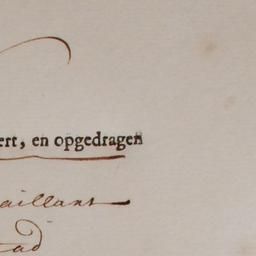 ert, en opgedragen
aillant
ad